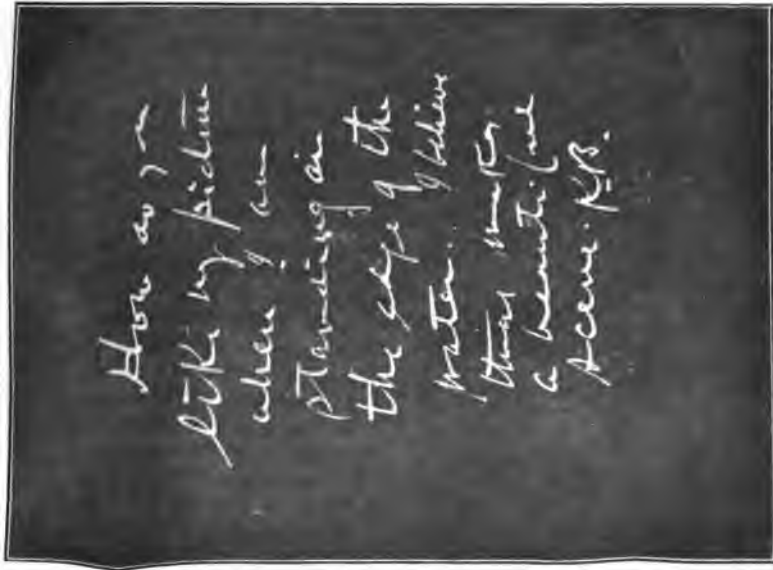 How do I
like my picture
when I am
standing in
the edge of the
water. I believe
that makes
a beautiful
scene. K.B.